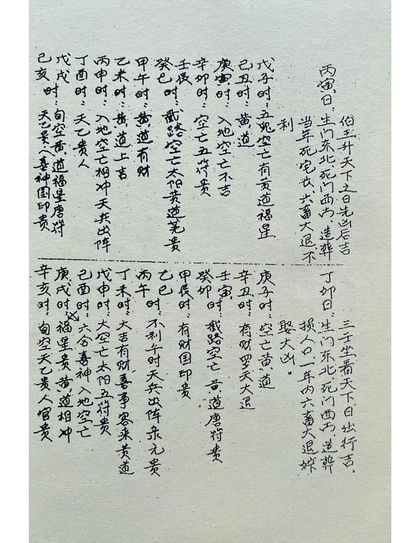 丙寅日：伯王升天下之日先凶后吉
生门东北，死门西南，造葬
当年死宅长，六畜大退不
利
戊子时：五鬼空亡有黄道福星
己丑时：黄道
庚寅时：入地空亡不吉
辛卯时：空亡五符贵
壬辰
癸巳时：截路空亡太阳黄道 贵
甲午时：黄道有财
乙未时：黄道上吉
丙申时：入地空亡相冲天兵出阵
丁酉时：天乙贵人
戊戌时：旬空黄道福星唐符
己亥时：天乙贵人喜神国印贵
丁卯日：三王坐看天下日出行吉，
生门东北，死门西南，造葬
损人口一年内六畜大退嫁
娶大凶。
庚子时：空亡黄道
辛丑时：有财罗天大退
壬寅
癸卯时：截路空亡黄道唐符贵
甲辰时：有财国印贵
乙巳
丙午时：不利上时天兵出阵 元贵
丁未时：大吉有财喜事客来黄道
戊申时：大空亡太阳五符贵
己酉时：六合喜神入地空亡
庚戌时：福星贵黄道相冲
辛亥时：旬空天乙贵人官贵